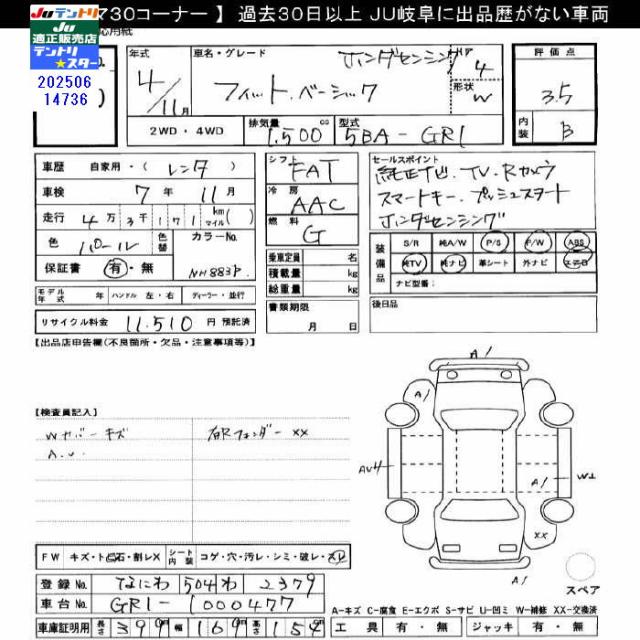 マ30コーナー 】 過去30日以上 JU岐阜に出品歴がない車両
JUテントリ
JU適正販売店
テントリ
★スター
202506
14736
応用紙
年式
4/11月
車名・グレード
ホンダセンシング
フィット.ベーシック
ドア
4
形状
W
評価点
3.5
内装
B
2WD・4WD
排気量
1.500 cc
型式
5BA-GR1
車歴 自家用・(レンタ)
車検 7年 11月
走行 4万3千171km(マイル)
色 パール 色替
カラーNo. NH883P
保証書 有・無
モデル年式 年 ハンドル 左・右 ディーラー・並行
リサイクル料金 11.510 円 預託済
シフト FAT
冷房 AAC
燃料 G
乗車定員 名
積載量 kg
総重量 kg
書類期限
月 日
セールスポイント
純正ナビ.TV.Rカメラ
スマートキー.プッシュスタート
ホンダセンシング
装備品
S/R 純A/W P/S P/W ABS
純TV 純ナビ 革シート 外ナビ エアB
ナビ型番:
後日品
【出品店申告欄(不良箇所・欠品・注意事項等)】
【検査員記入】
Wカバーキズ
A.U.
右Rフェンダー XX
A1
A1
AU4
A1
XX
A1
スペア
FW キズ・ト凸石・割レX シート内装 コゲ・穴・汚レ・シミ・破レ・スレ
登録No. なにわ 504 わ 2379
車台No. GR1-1000477
車庫証明用 長さ 399 幅 169 高さ 154
A-キズ C-腐食 E-エクボ S-サビ U-凹ミ W-補修 XX-交換済
工具 有・無 ジャッキ 有・無